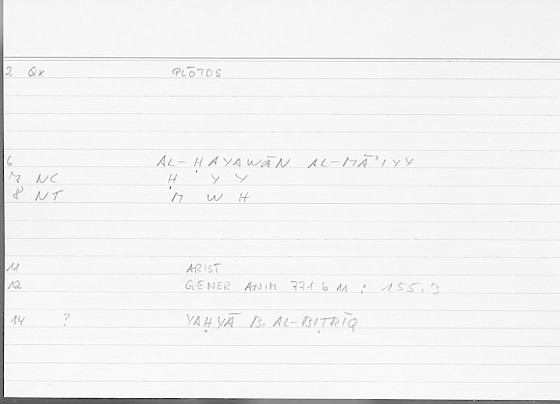 2 Qx PLŌTOS
6 AL-ḤAYAWĀN AL-MĀʾIYY
7 NC Ḥ Y Y
8 NT M W H
11 ARIST
12 GENER ANIM 771 b 11 : 155.9
14 ? YAḤYĀ B. AL-BIṬRĪQ